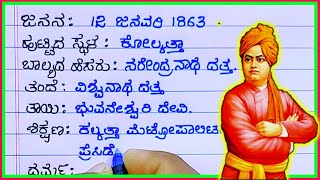 ಜನನ: 12 ಜನವರಿ 1863.
ಹುಟ್ಟಿದ ಸ್ಥಳ: ಕೋಲ್ಕತ್ತಾ
ಬಾಲ್ಯದ ಹೆಸರು: ನರೇಂದ್ರನಾಥ ದತ್ತ.
ತಂದೆ: ವಿಶ್ವನಾಥ ದತ್ತ
ತಾಯಿ: ಭುವನೇಶ್ವರಿ ದೇವಿ.
ಶಿಕ್ಷಣ: ಕಲ್ಕತ್ತಾ ಮೆಟ್ರೋಪಾಲಿಟ
ಪ್ರೆಸಿಡೆ
ಧರ್ಮ: